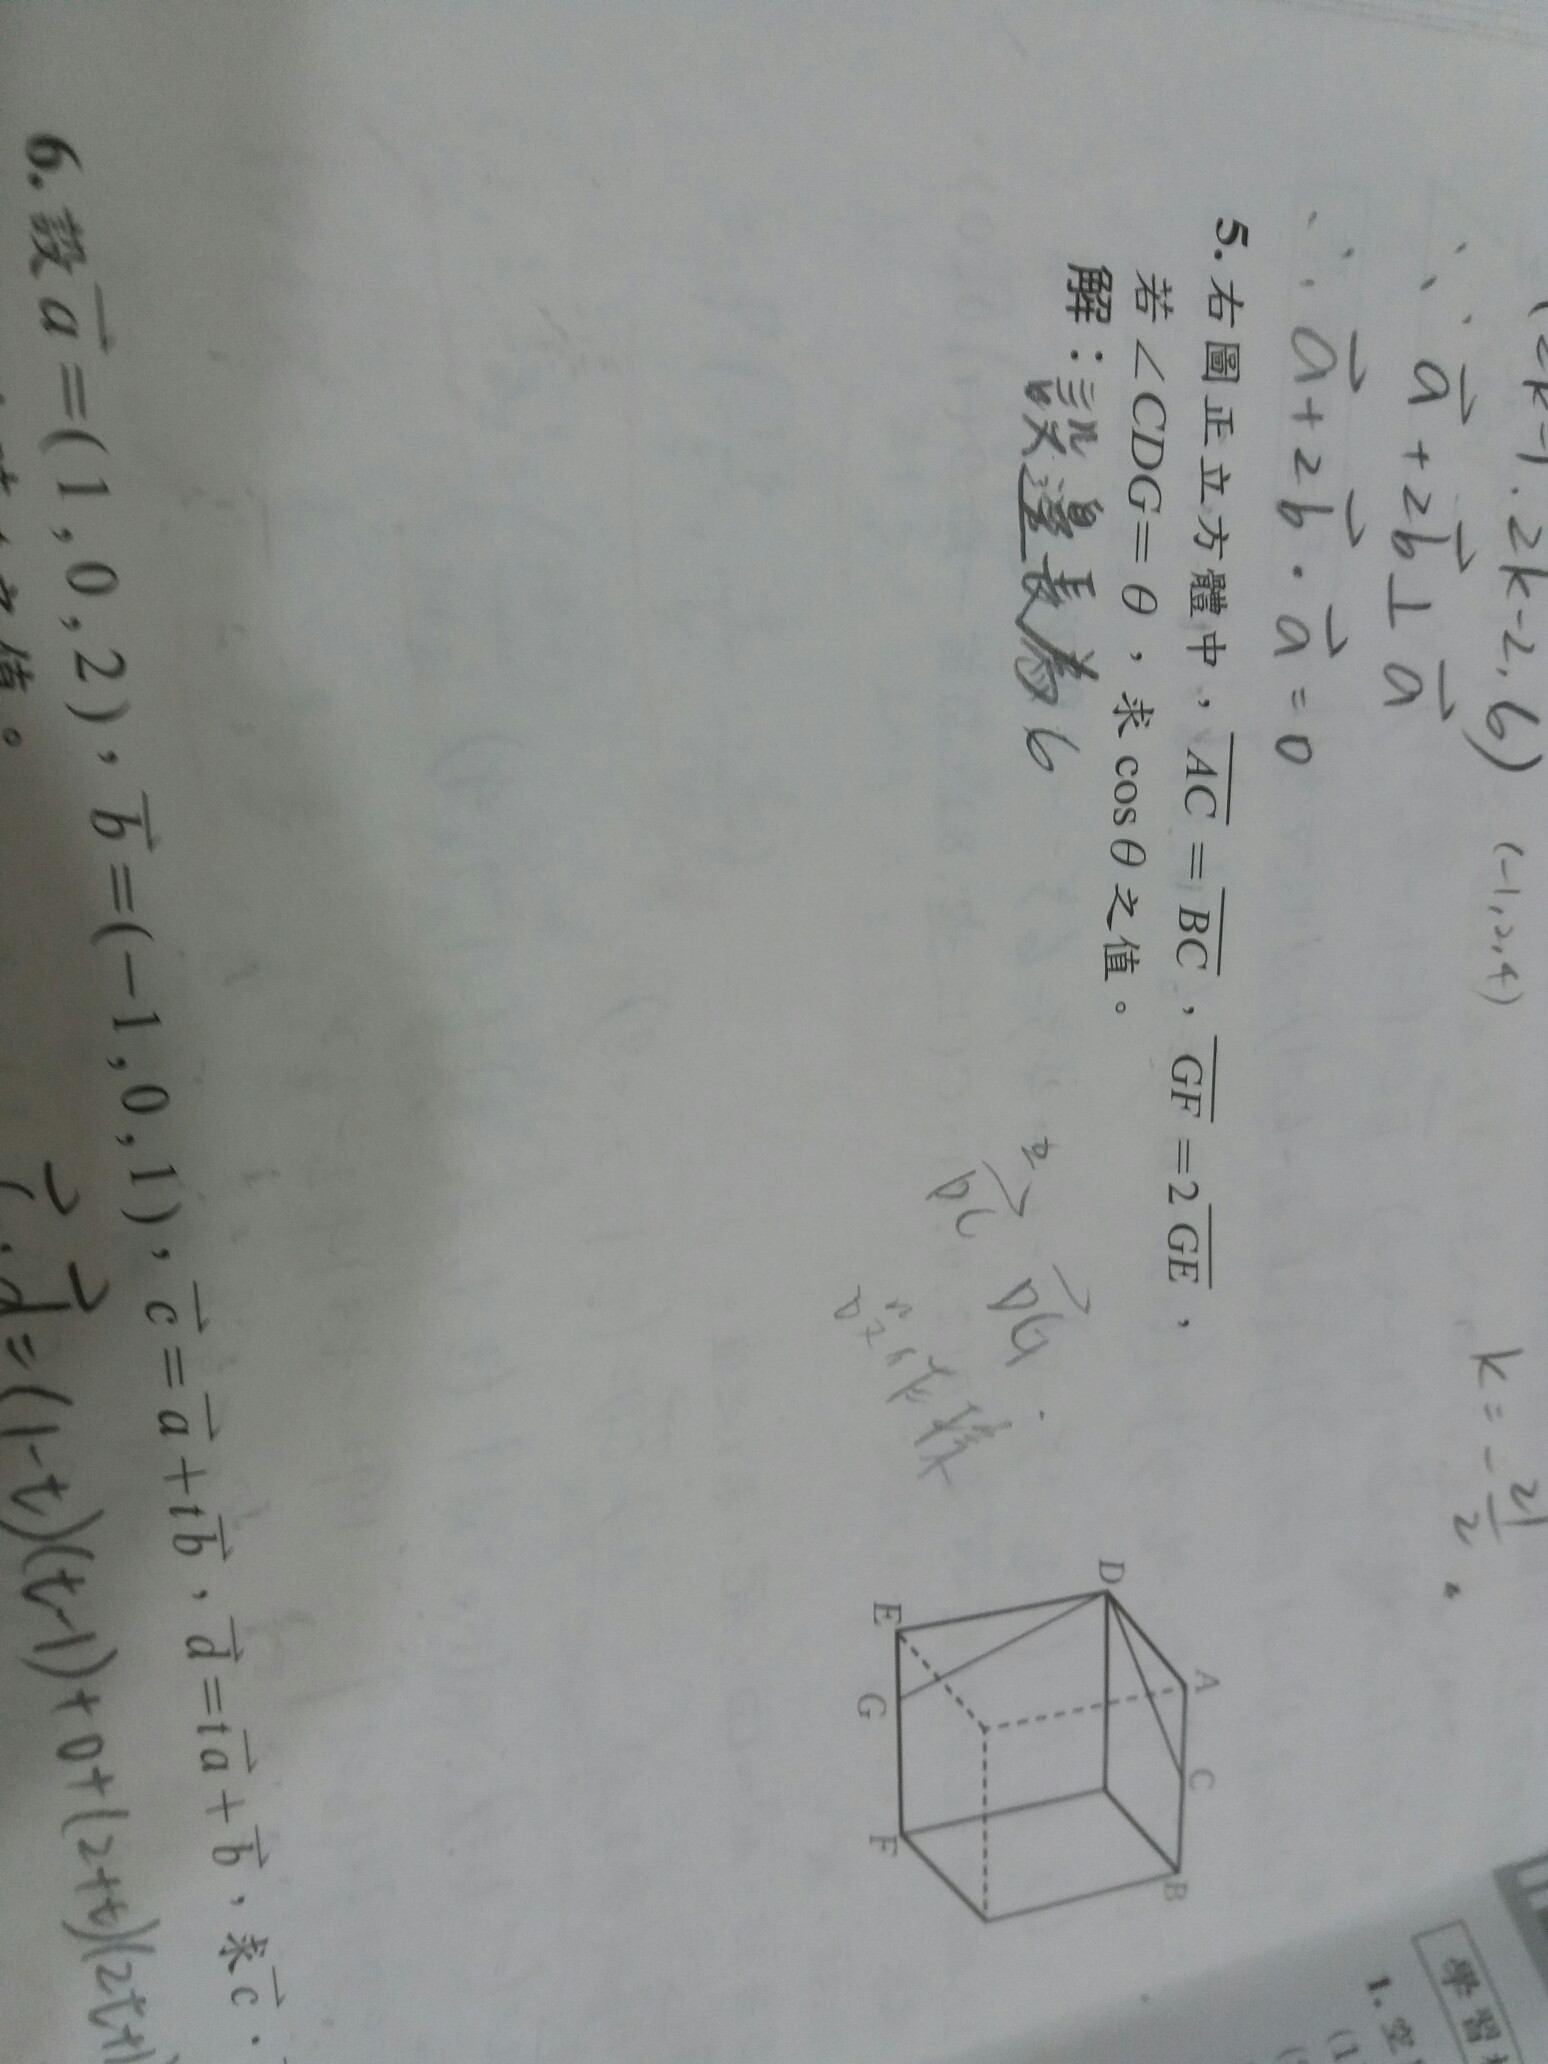 (2k-1, 2k-2, 6) (-1,2,4)
k=-21/2
∵ a⃗+2b⃗⊥a⃗
∴ a⃗+2b⃗·a⃗=0
5. 右圖正立方體中，A̅C̅=B̅C̅，G̅F̅=2G̅E̅，
若∠CDG=θ，求cosθ之值。
解：設邊長為6
DC⃗ DG⃗
D A C B
E G F
6. 設a⃗=(1,0,2)，b⃗=(-1,0,1)，c⃗=a⃗+tb⃗，d⃗=ta⃗+b⃗，求c⃗·
之值。
d⃗=(1-t)(t-1)+0+(2+t)(2t+1)
學習
1. 空